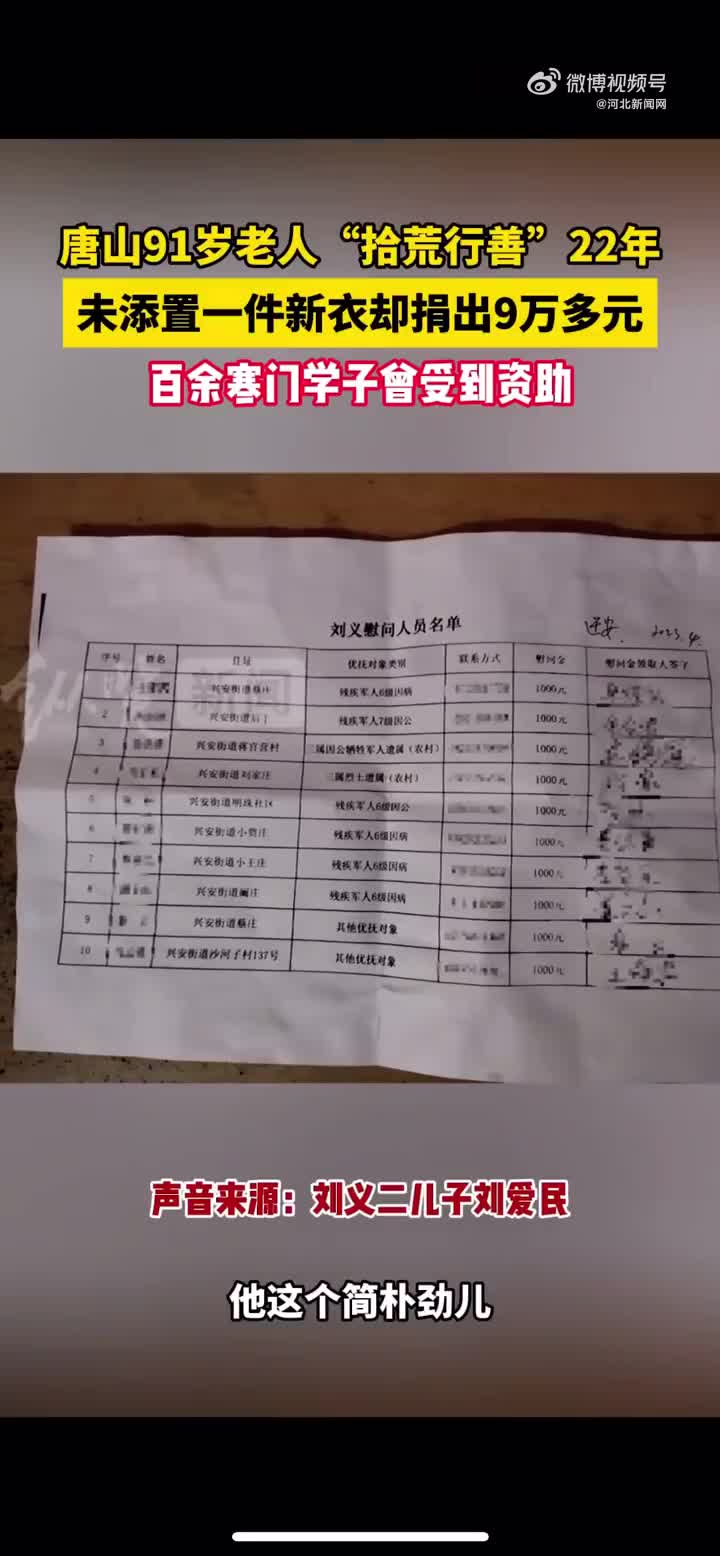 微博视频号
@河北新闻网
唐山91岁老人“拾荒行善”22年
未添置一件新衣却捐出9万多元
百余寒门学子曾受到资助
刘义慰问人员名单
迁安 2023.4.
序号 姓名 住址 优抚对象类别 联系方式 慰问金 慰问金领取人签字
兴安街道 残疾军人6级因病 1000元
2 兴安街道 残疾军人7级因公 1000元
3 兴安街道蒋官营村 三属因公牺牲军人遗属（农村） 1000元
4 兴安街道刘家庄 三属烈士遗属（农村） 1000元
5 兴安街道明珠社区 残疾军人6级因公 1000元
6 兴安街道小贾庄 残疾军人6级因病 1000元
7 兴安街道小王庄 残疾军人6级因病 1000元
8 兴安街道阚庄 残疾军人6级因病 1000元
9 兴安街道蔡庄 其他优抚对象 1000元
10 兴安街道沙河子村137号 其他优抚对象 1000元
新闻
声音来源：刘义二儿子刘爱民
他这个简朴劲儿